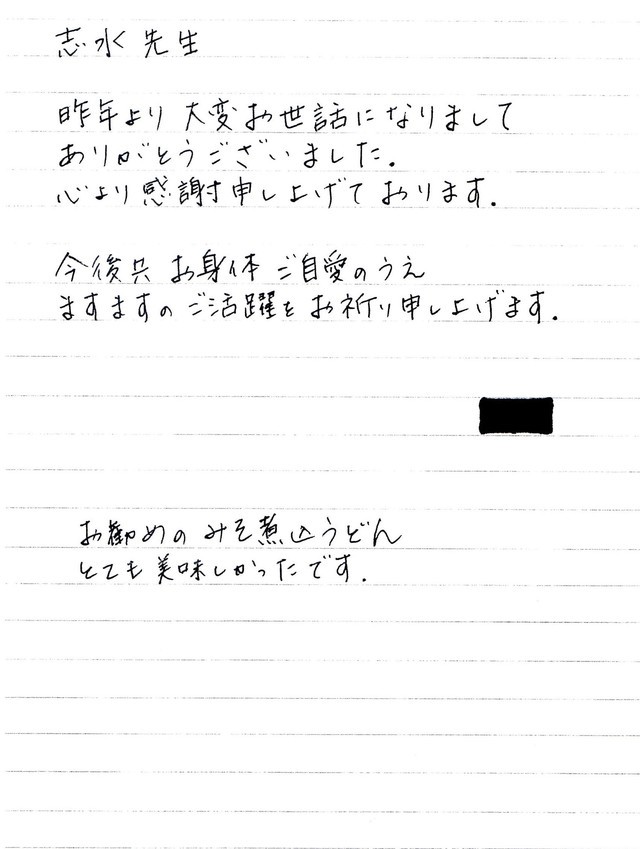 志水先生
昨年より大変お世話になりまして
ありがとうございました.
心より感謝申し上げております.
今後共お身体ご自愛のうえ
ますますのご活躍をお祈り申し上げます.
お勧めのみそ煮込うどん
とても美味しかったです.